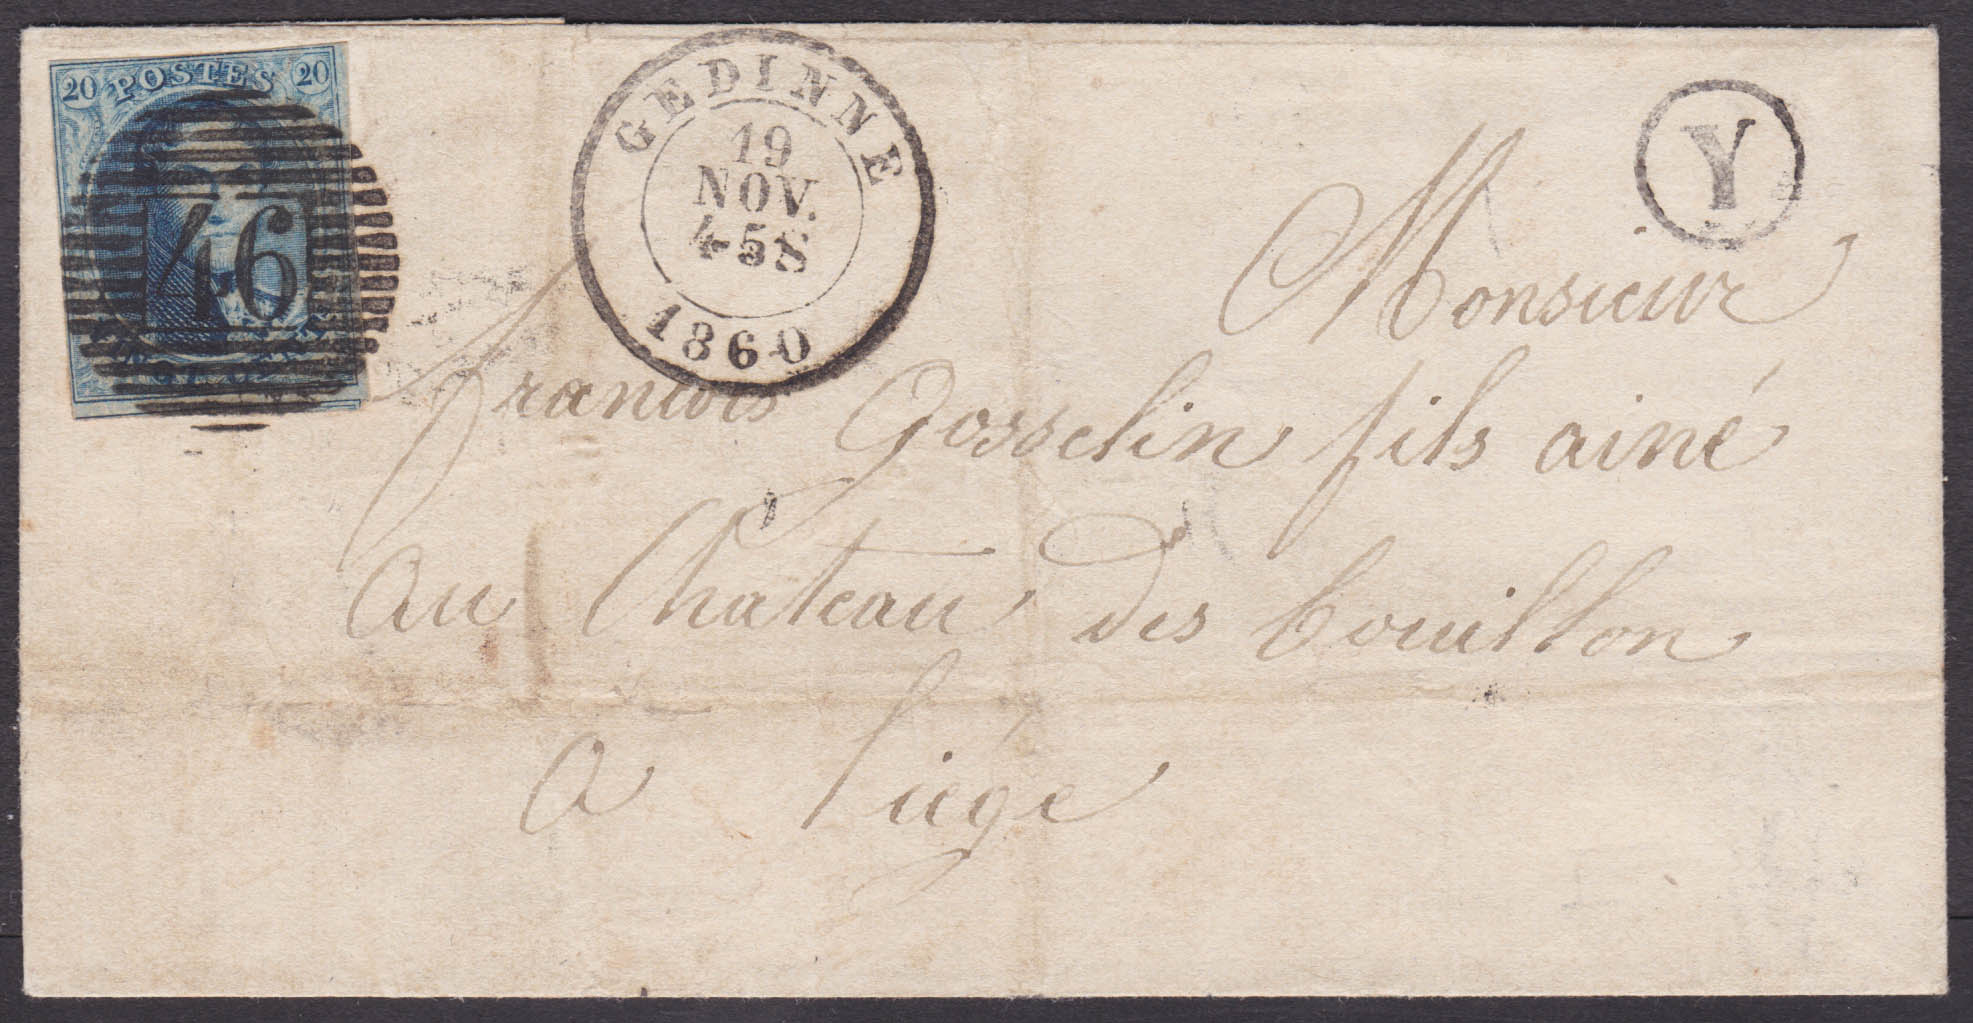 20 POSTES 20
46
GEDINNE
19
NOV.
4-5S
1860
Y
Monsieur
francois Gosselin fils ainé
au Chateau des bouillon
a liége